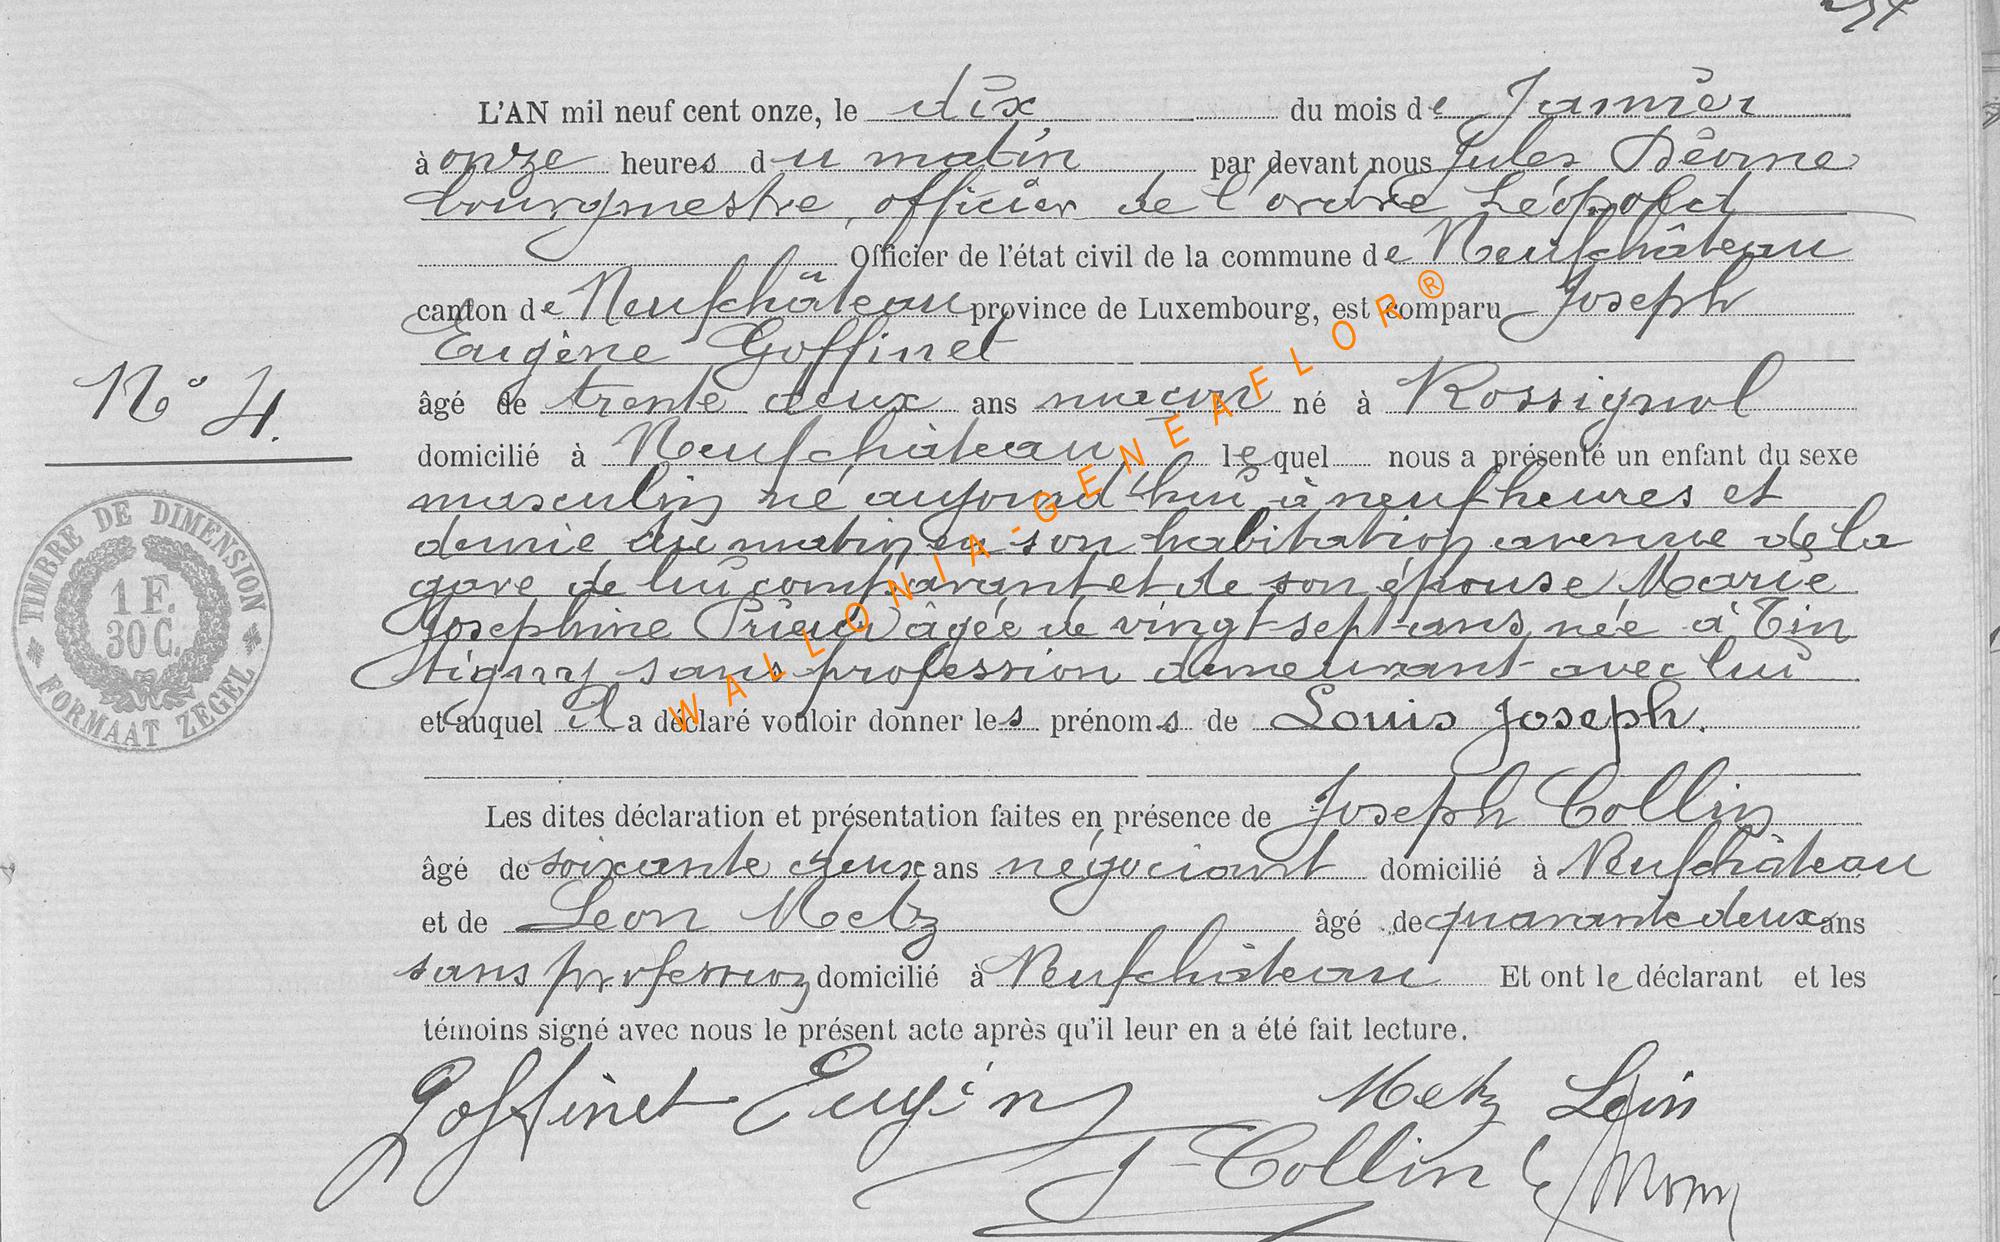 L'AN mil neuf cent onze, le dix du mois de Janvier
à onze heures du matin par devant nous Jules
bourgmestre, officier de l'ordre Léopold
Officier de l'état civil de la commune de Neufchâteau
canton de Neufchâteau province de Luxembourg, est comparu Joseph
Eugène Goffinet
N° 4.
âgé de trente deux ans maçon né à Rossignol
domicilié à Neufchâteau lequel nous a présenté un enfant du sexe
masculin né aujourd'hui à neuf heures et
demie du matin en son habitation avenue de la
gare de lui comparant et de son épouse Marie
Josephine âgée de vingt-sept-ans, née à Tin
tigny sans profession demeurant avec lui
et auquel il a déclaré vouloir donner les prénoms de Louis Joseph.
Les dites déclaration et présentation faites en présence de Joseph Collin
âgé de soixante deux ans négociant domicilié à Neufchâteau
et de Léon Metz âgé de quarante deux ans
sans profession domicilié à Neufchâteau Et ont le déclarant et les
témoins signé avec nous le présent acte après qu'il leur en a été fait lecture.
Goffinet Eugène Metz Léon
J Collin
TIMBRE DE DIMENSION
1 F.
30 C.
FORMAAT ZEGEL
WALLONIA-GENEAFLOR®